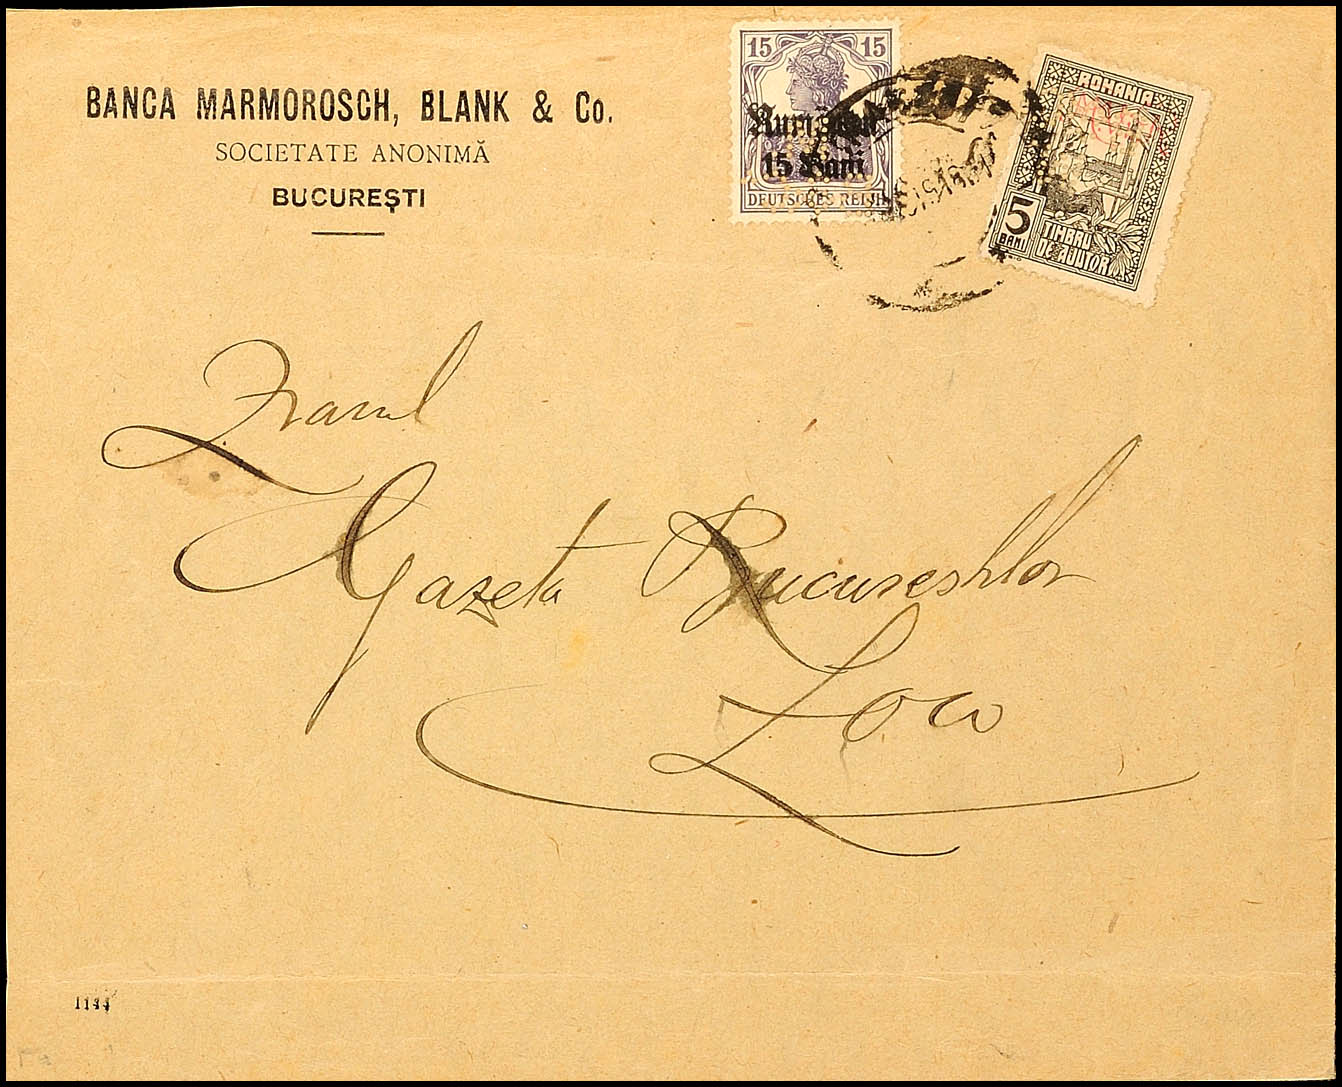 BANCA MARMOROSCH, BLANK & Co.
SOCIETATE ANONIMĂ
BUCUREȘTI
15 15
Rumänien
15 Bani
DEUTSCHES REICH
ROMANIA
5
BANI
TIMBRU
DE AJUTOR
Ziarul
Gazeta Bucurestilor
Loco